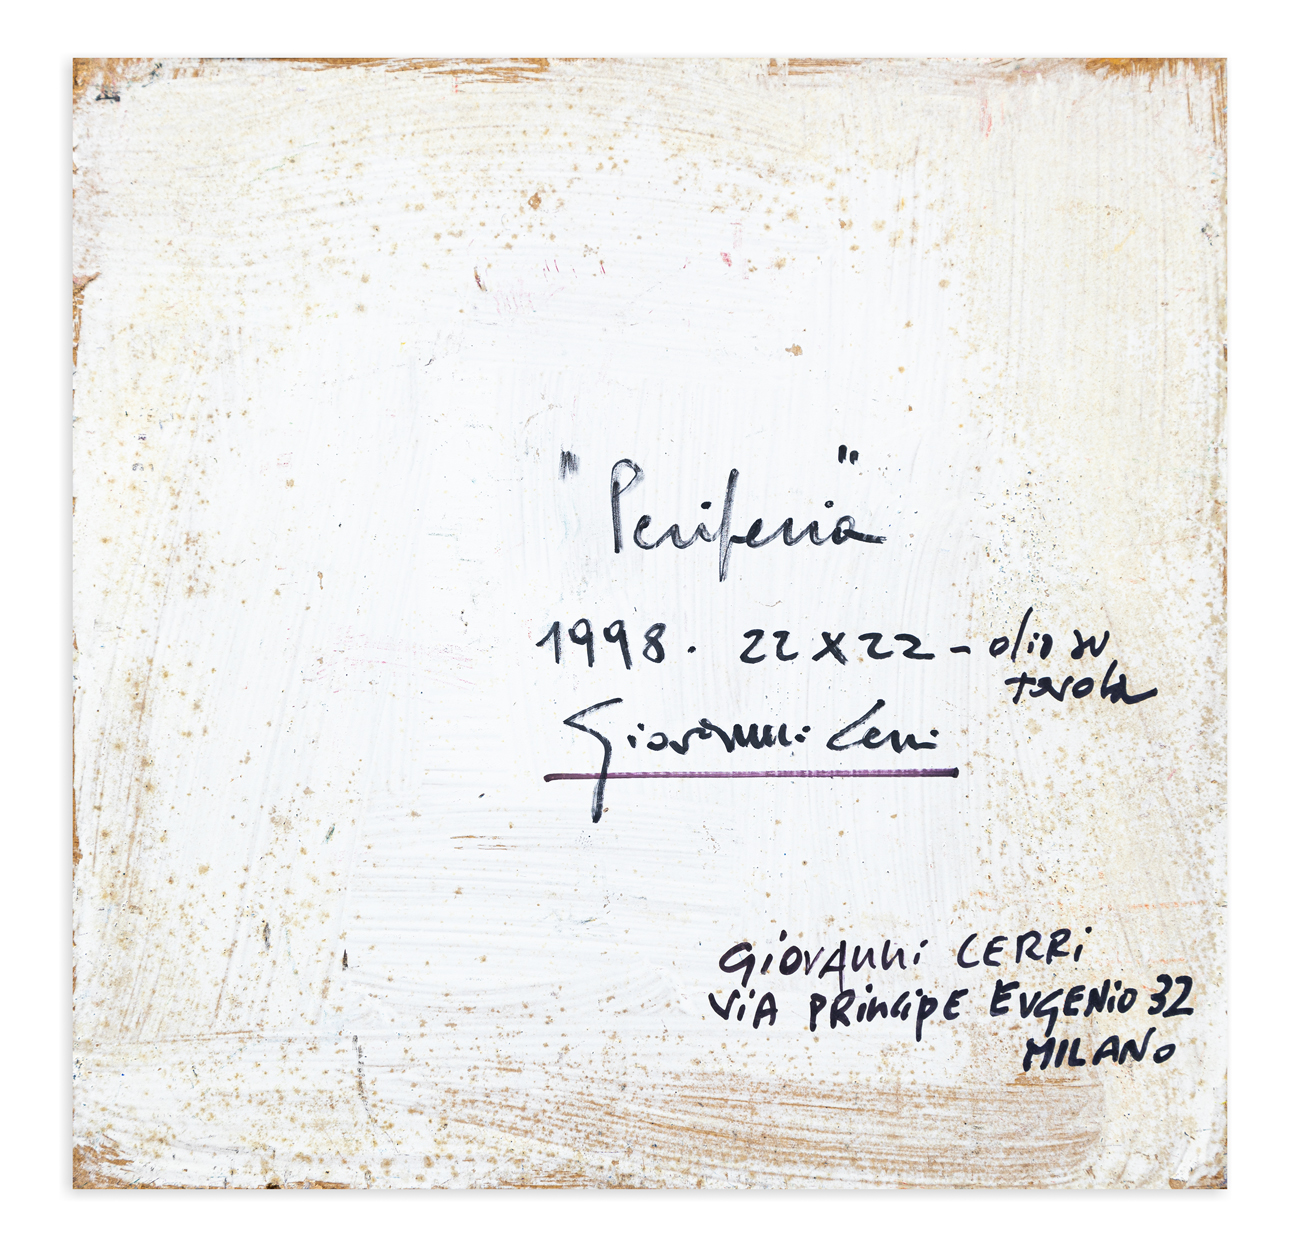 "Periferia"
1998. 22 x 22 - olio su
tavola
Giovanni Cerri
GiovANNi CERRi
ViA PRiNCipE EUGENiO 32
MILANO